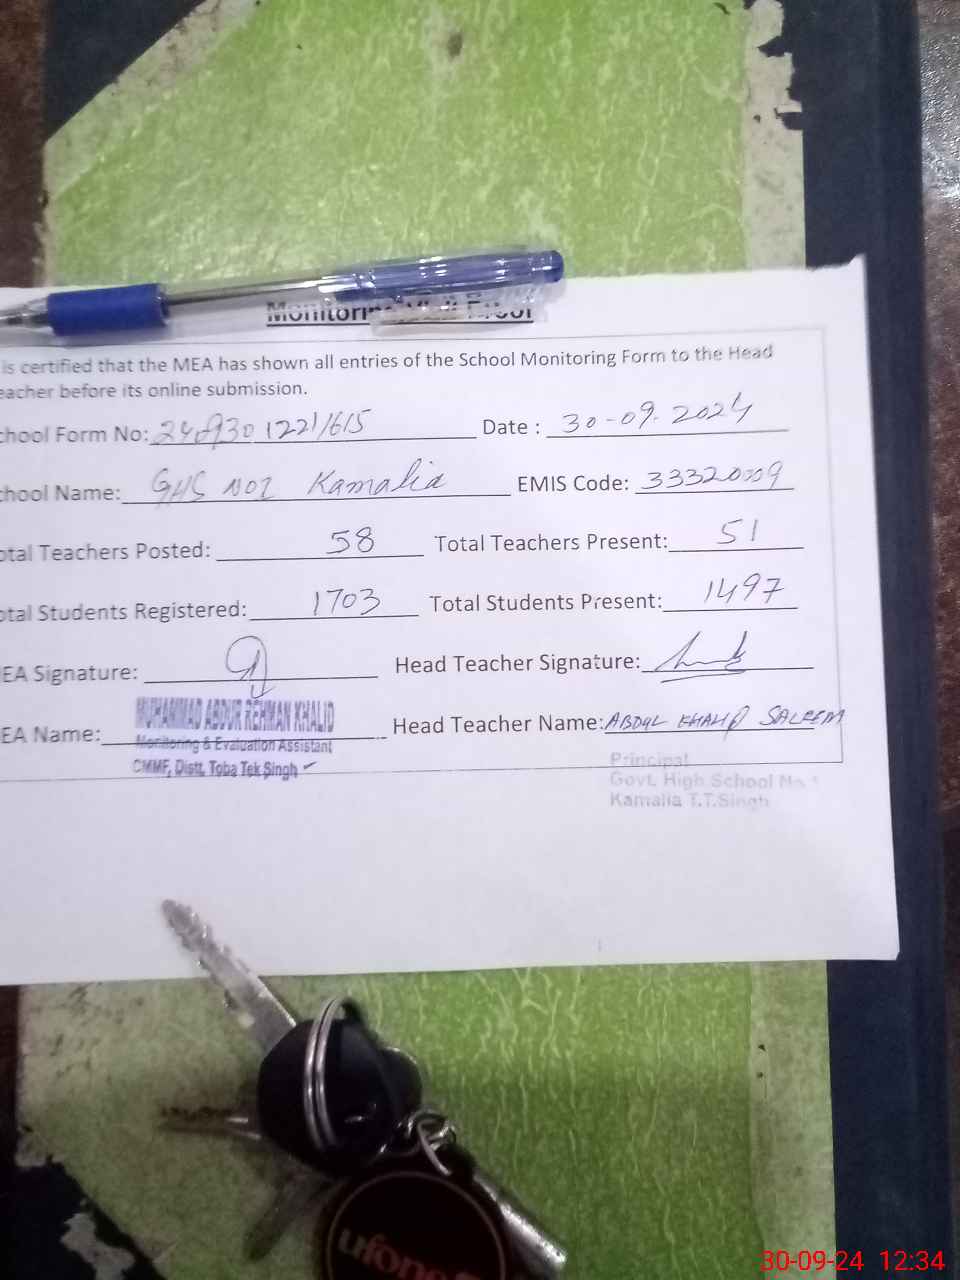 Monitoring Visit Proof
is certified that the MEA has shown all entries of the School Monitoring Form to the Head
eacher before its online submission.
chool Form No: Date : 30-09-2024
chool Name: GHS NO1 Kamalia EMIS Code:
otal Teachers Posted: 58 Total Teachers Present: 51
otal Students Registered: 1703 Total Students Present: 1497
EA Signature: Head Teacher Signature:
EA Name: MUHAMMAD ABDUR REHMAN KHALID Head Teacher Name: ABDUL KHALIQ SALEEM
Monitoring & Evaluation Assistant
CMMF, Distt. Toba Tek Singh
Principal
Govt. High School No.1
Kamalia T.T.Singh
ufone
30-09-24 12:34